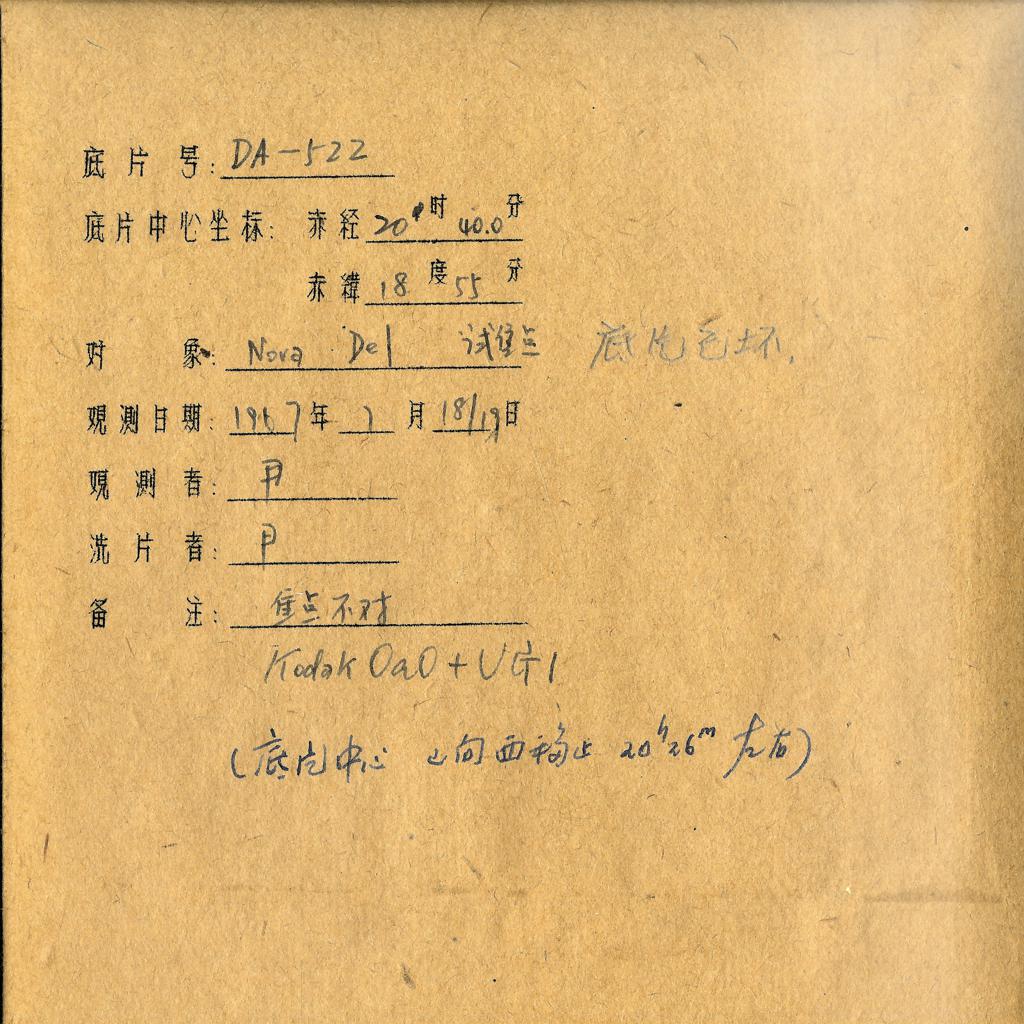 底片号: DA-522
底片中心坐标: 赤经 20时 40.0分
赤緯 18度 55分
对象: Nova Del 试焦点 底片已坏.
观测日期: 1967年 7月 18/19日
观测者: 尹
洗片者: 尹
备注: 焦点不对
Kodak OaO + UG1
(底片中心 已向西移 20h26m 左右)